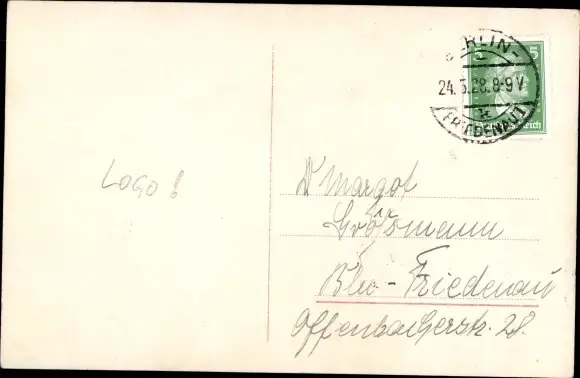 BERLIN-
5
24.5.28.8-9V
FRIEDENAU 1
Reich
LOGO!
Dr Margot
Größmann
Bln-Friedenau
Offenbacherstr. 28.